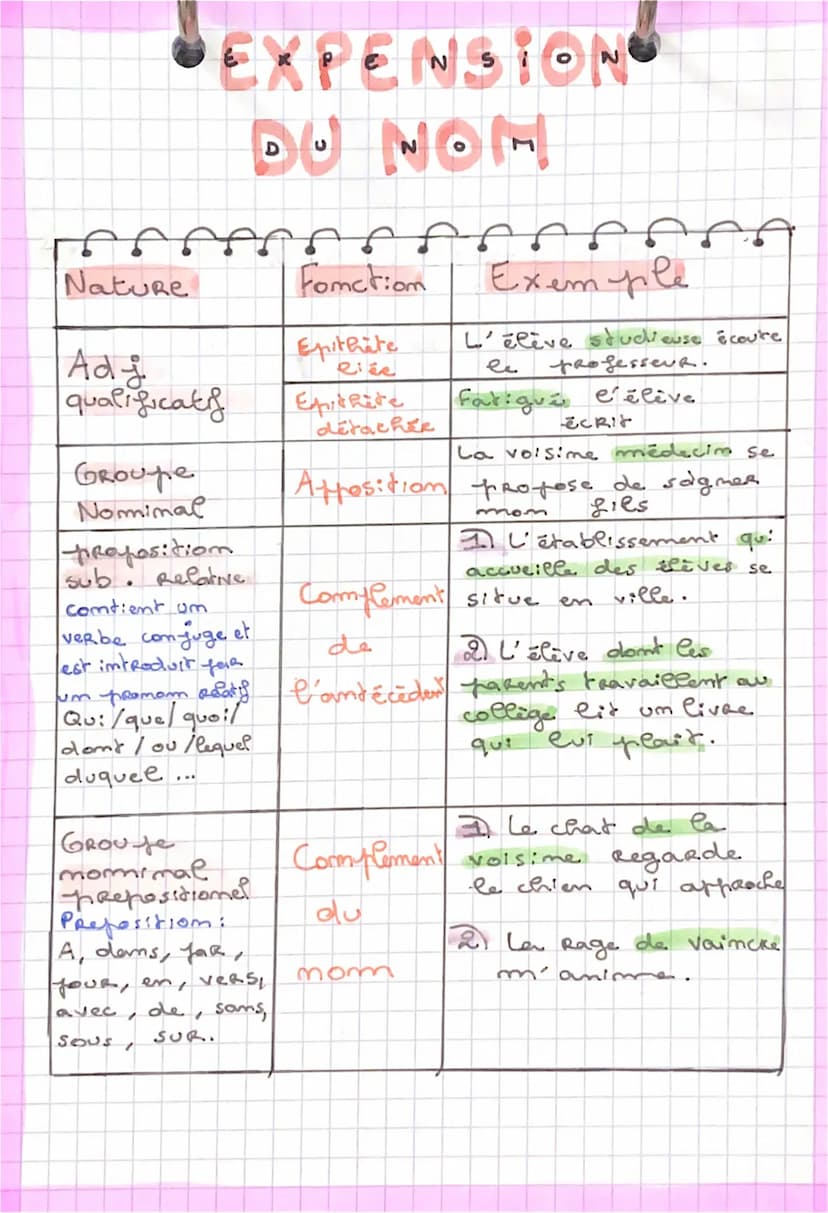 EXPENSION
DU NOM
Nature
Fonction
Exemple
Adj
qualificatif
Epithète
liée
L'élève studieuse écoute
le professeur.
Epithète
détachée
Fatigué l'élève
écrit
Groupe
Nominal
Apposition
La voisine médecin se
propose de soigner
mon fils
proposition
sub. Relative
contient un
verbe conjugé et
est introduit par
un pronom relatif
Qui/que/quoi/
dont/ou/lequel
duquel...
Complement
de
l'antécédent
1) L'établissement qui
accueille des élèves se
situe en ville.
2) L'élève dont les
parents travaillent au
collège lit un livre
qui lui plait.
Groupe
nominal
prepositionel
Preposition:
A, dans, par,
pour, en, vers,
avec, de, sans,
sous, sur.
Complement
du
nom
1) Le chat de la
voisine regarde
le chien qui approche
2) La rage de vaincre
m'anime.